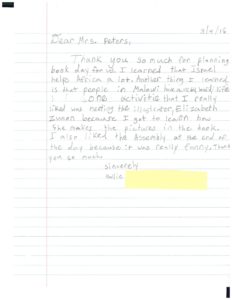 Dear Mrs. Peters,
Thank you so much for planning
book day for us. I learned that Israel
helps Africa a lot. Another thing I learned
is that people in Malawi have a very hard life
One activitie that I really
liked was meeting the illustrator, Elizabeth
Zunon because I got to learn how
she makes the pictures in the book.
I also liked the Assembly at the end of
the day because it was really funny. Thank
you so much.
Sincerely